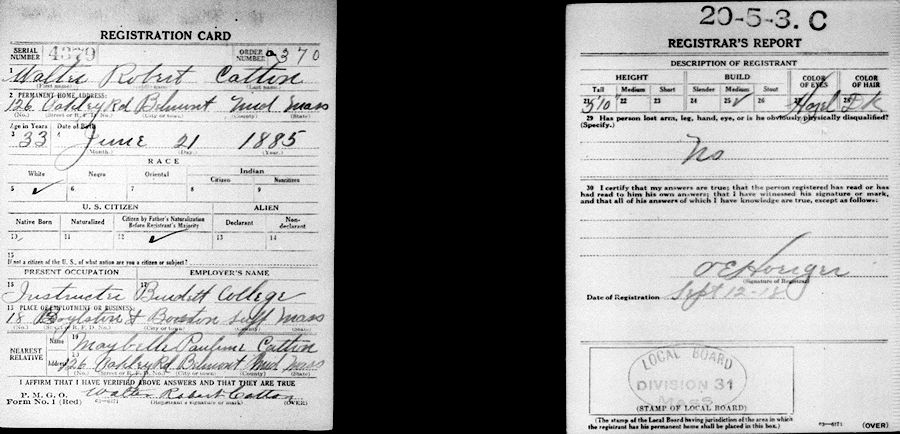 REGISTRATION CARD
SERIAL NUMBER 4379 ORDER NUMBER a370
1 Walter Robert Catton
(First name) (Last name)
2 PERMANENT HOME ADDRESS:
126 Oakley Rd Belmont Mid Mass
(No.) (Street or R. F. D. No.) (City or town) (County) (State)
Age in Years 3 Date of Birth 4
33 June 21 1885
(Month.) (Day.) (Year.)
RACE
White Negro Oriental Indian
Citizen Noncitizen
5 ✓ 6 7 8 9
U. S. CITIZEN ALIEN
Native Born Naturalized Citizen by Father's Naturalization Before Registrant's Majority Declarant Non-declarant
10 11 12 ✓ 13 14
15
If not a citizen of the U. S., of what nation are you a citizen or subject?
PRESENT OCCUPATION EMPLOYER'S NAME
16 Instructor 17 Burdett College
18 PLACE OF EMPLOYMENT OR BUSINESS:
18 Boylston St Boston Suff Mass
(No.) (Street or R. F. D. No.) (City or town) (County) (State)
NEAREST RELATIVE
Name 19 Maybelle Pauline Catton
Address 20 126 Oakley Rd Belmont Mid Mass
(No.) (Street or R. F. D. No.) (City or town) (County) (State)
I AFFIRM THAT I HAVE VERIFIED ABOVE ANSWERS AND THAT THEY ARE TRUE
P. M. G. O.
Form No. 1 (Red) 03—6171 Walter Robert Catton
(Registrant's signature or mark) (OVER)
20-5-3. C
REGISTRAR'S REPORT
DESCRIPTION OF REGISTRANT
HEIGHT BUILD COLOR OF EYES COLOR OF HAIR
Tall Medium Short Slender Medium Stout
21 5'10" 22 23 24 25 ✓ 26 27 Hazel 28 DK
29 Has person lost arm, leg, hand, eye, or is he obviously physically disqualified?
(Specify.)
No
30 I certify that my answers are true; that the person registered has read or has
had read to him his own answers; that I have witnessed his signature or mark,
and that all of his answers of which I have knowledge are true, except as follows:
(Signature of Registrar)
Date of Registration Sept 12-18
LOCAL BOARD
DIVISION 31
MASS
(STAMP OF LOCAL BOARD)
(The stamp of the Local Board having jurisdiction of the area in which
the registrant has his permanent home shall be placed in this box.)
03—6171 (OVER)